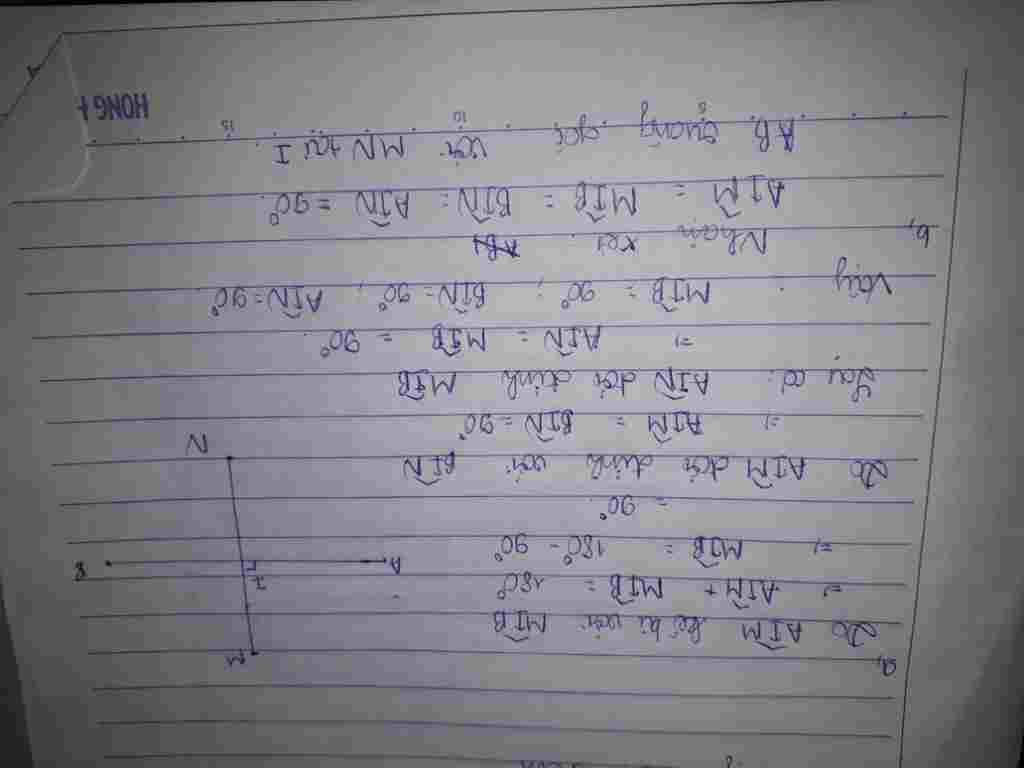 a,
Do A͡IM kề bù với M͡IB
=> A͡IM + M͡IB = 180°
=> M͡IB = 180° - 90°
= 90°.
Do A͡IM đối đỉnh với B͡IN
=> A͡IM = B͡IN = 90°
Lại có: A͡IN đối đỉnh M͡IB
=> A͡IN = M͡IB = 90°.
Vậy M͡IB = 90° ; B͡IN = 90° ; A͡IN = 90°.
b, Nhận xét.
A͡IM = M͡IB = B͡IN = A͡IN = 90°.
AB vuông góc với MN tại I
M
I
A
B
N
5 10 15
HONG